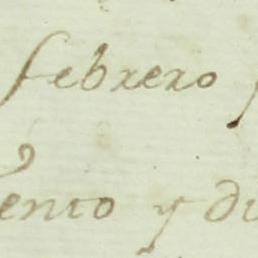 febrero
ento y du